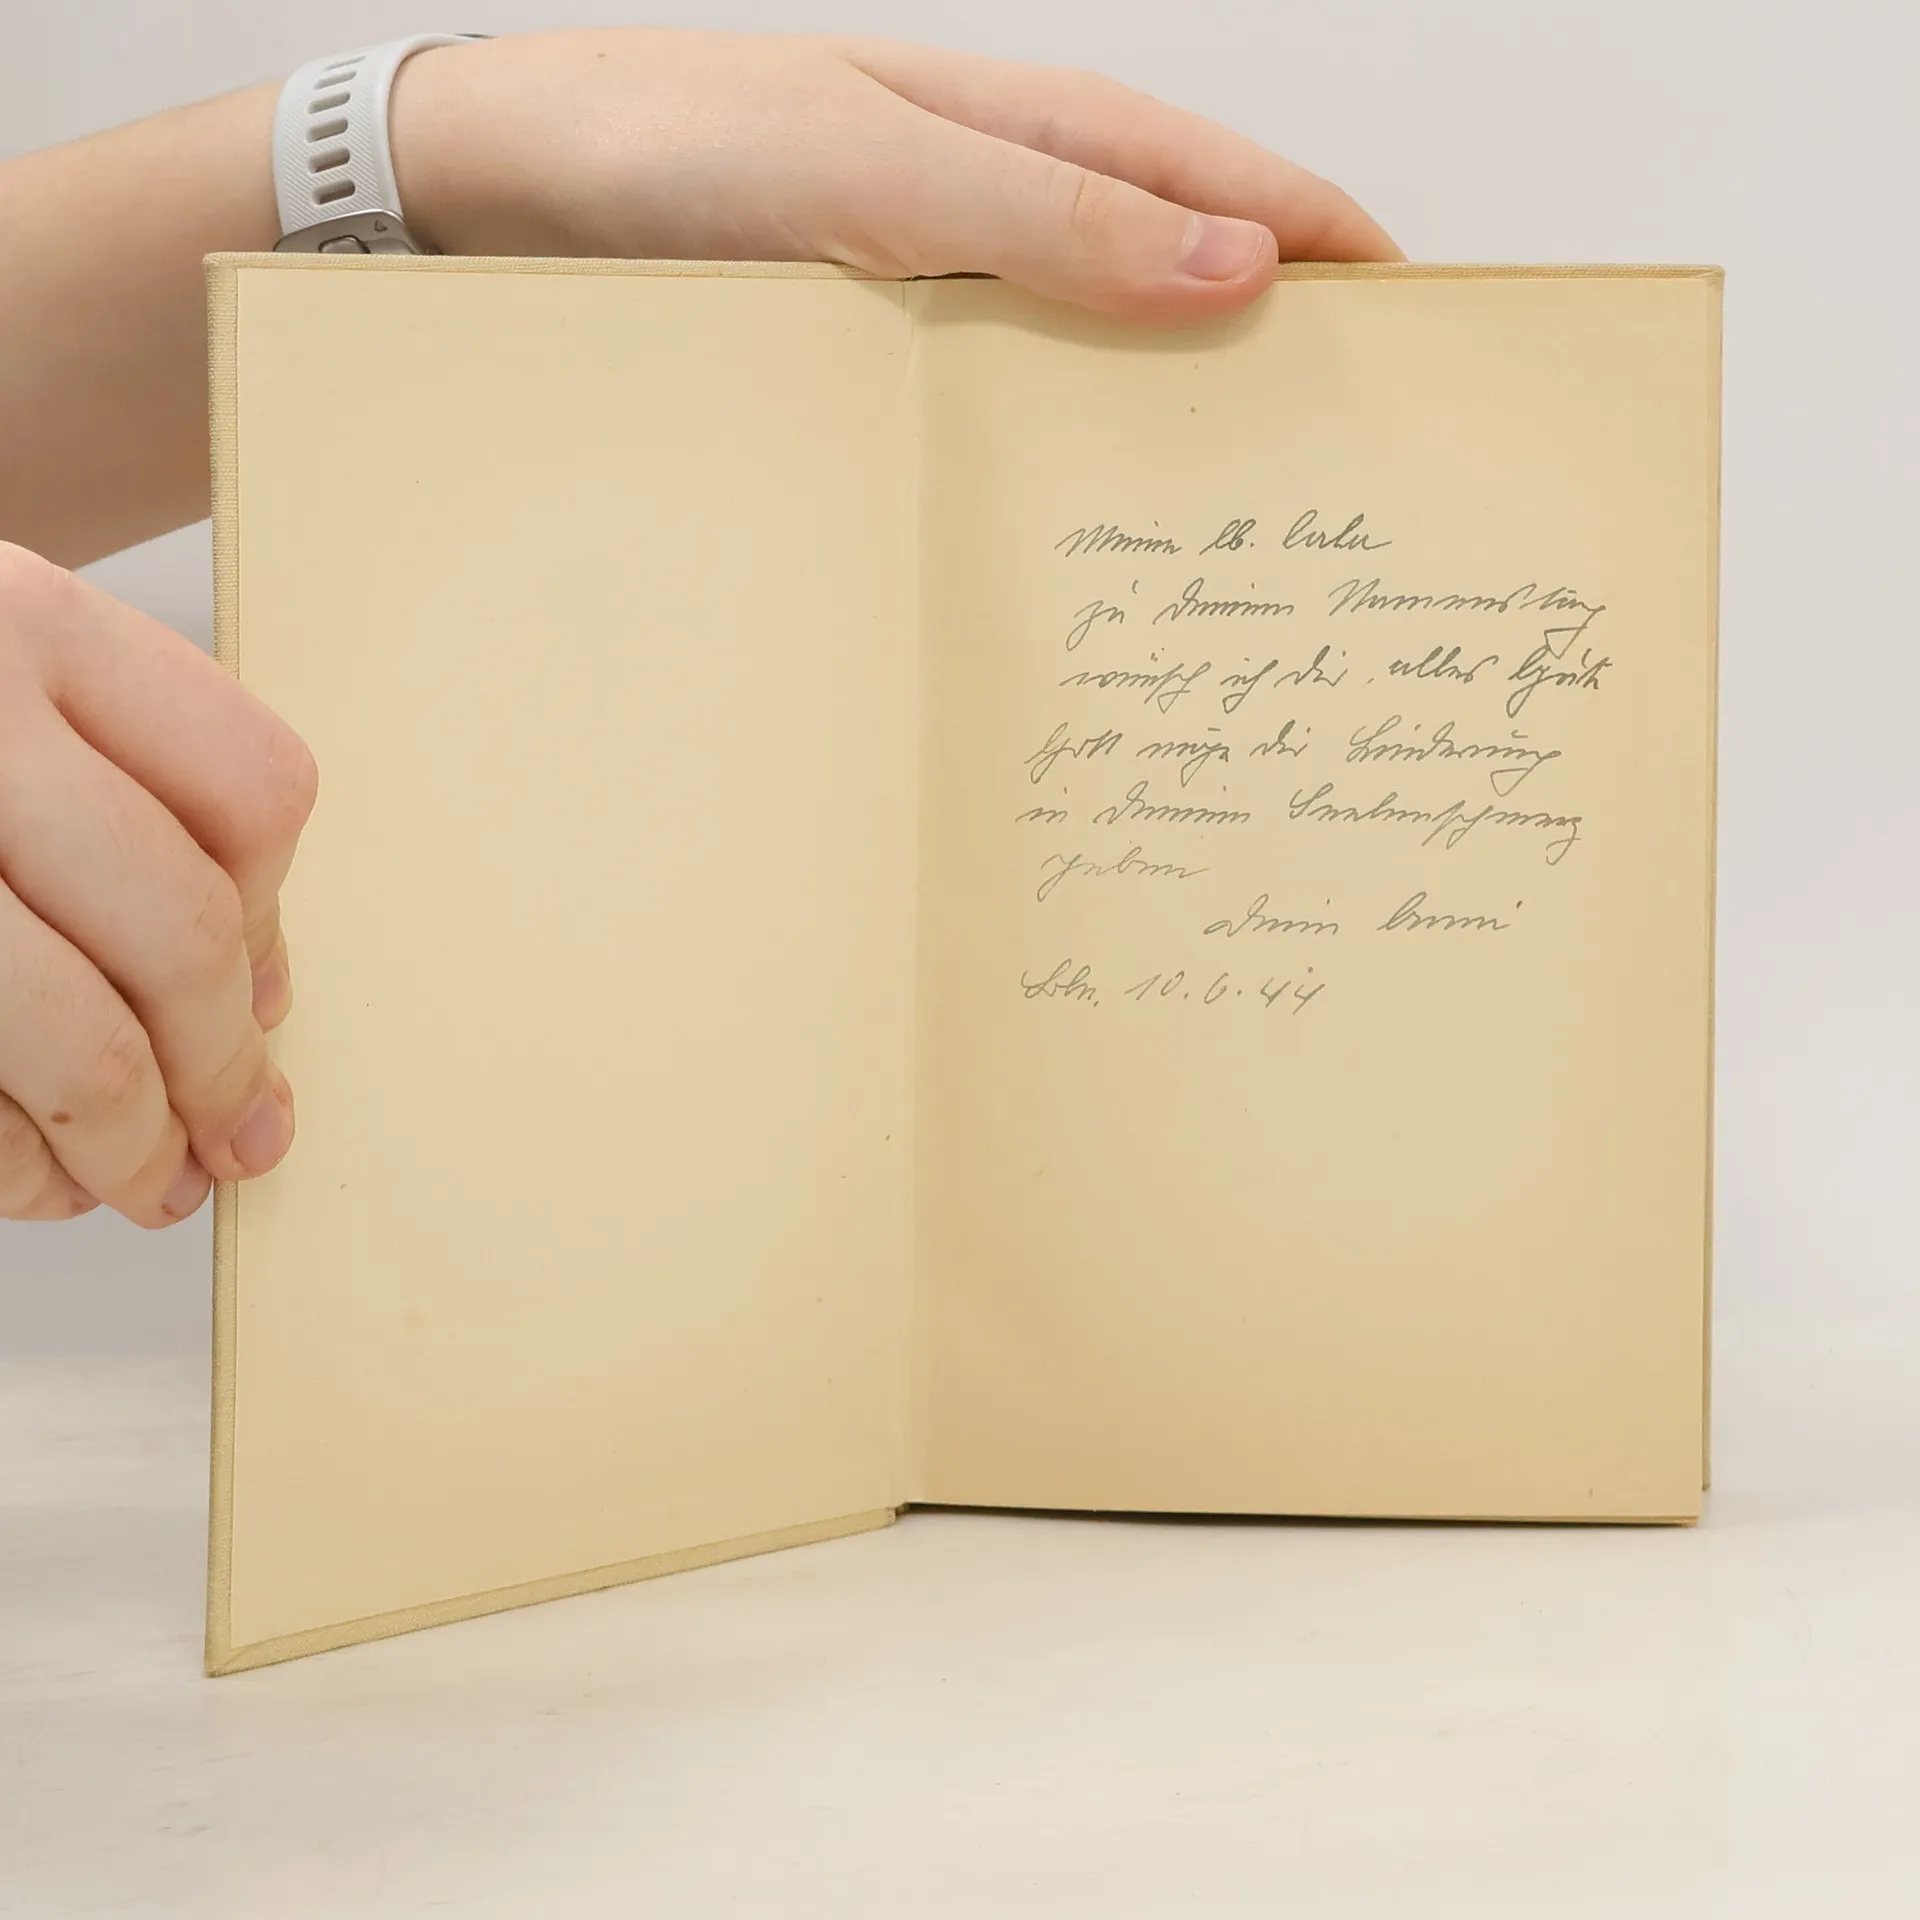 Meine lb.
zu Deinem Namenstag
wünsch ich dir alles Gute
Gott möge dir Linderung
in Deinem Seelenschmerz
geben
Deine
Bln. 10.6.44